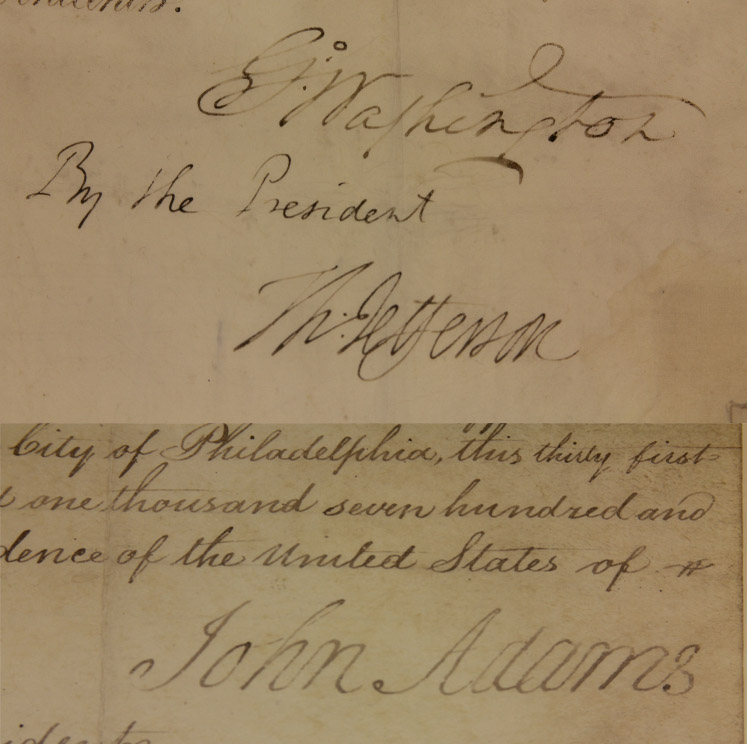 G:Washington
By the President
Th:Jefferson
City of Philadelphia, this thirty first
one thousand seven hundred and
dence of the United States of
John Adams